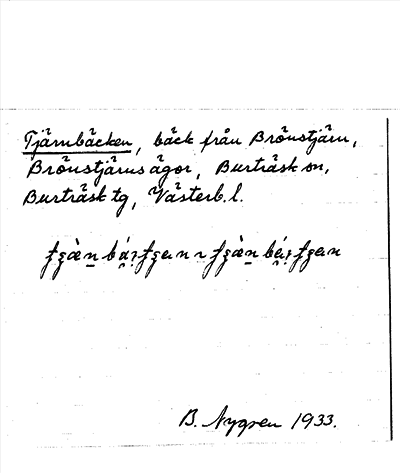 Tjärnbäcken, bäck från Brönstjärn,
Brönstjärns ägor, Burträsk sn,
Burträsk tg, Västerb. l.
B. Nygren 1933.